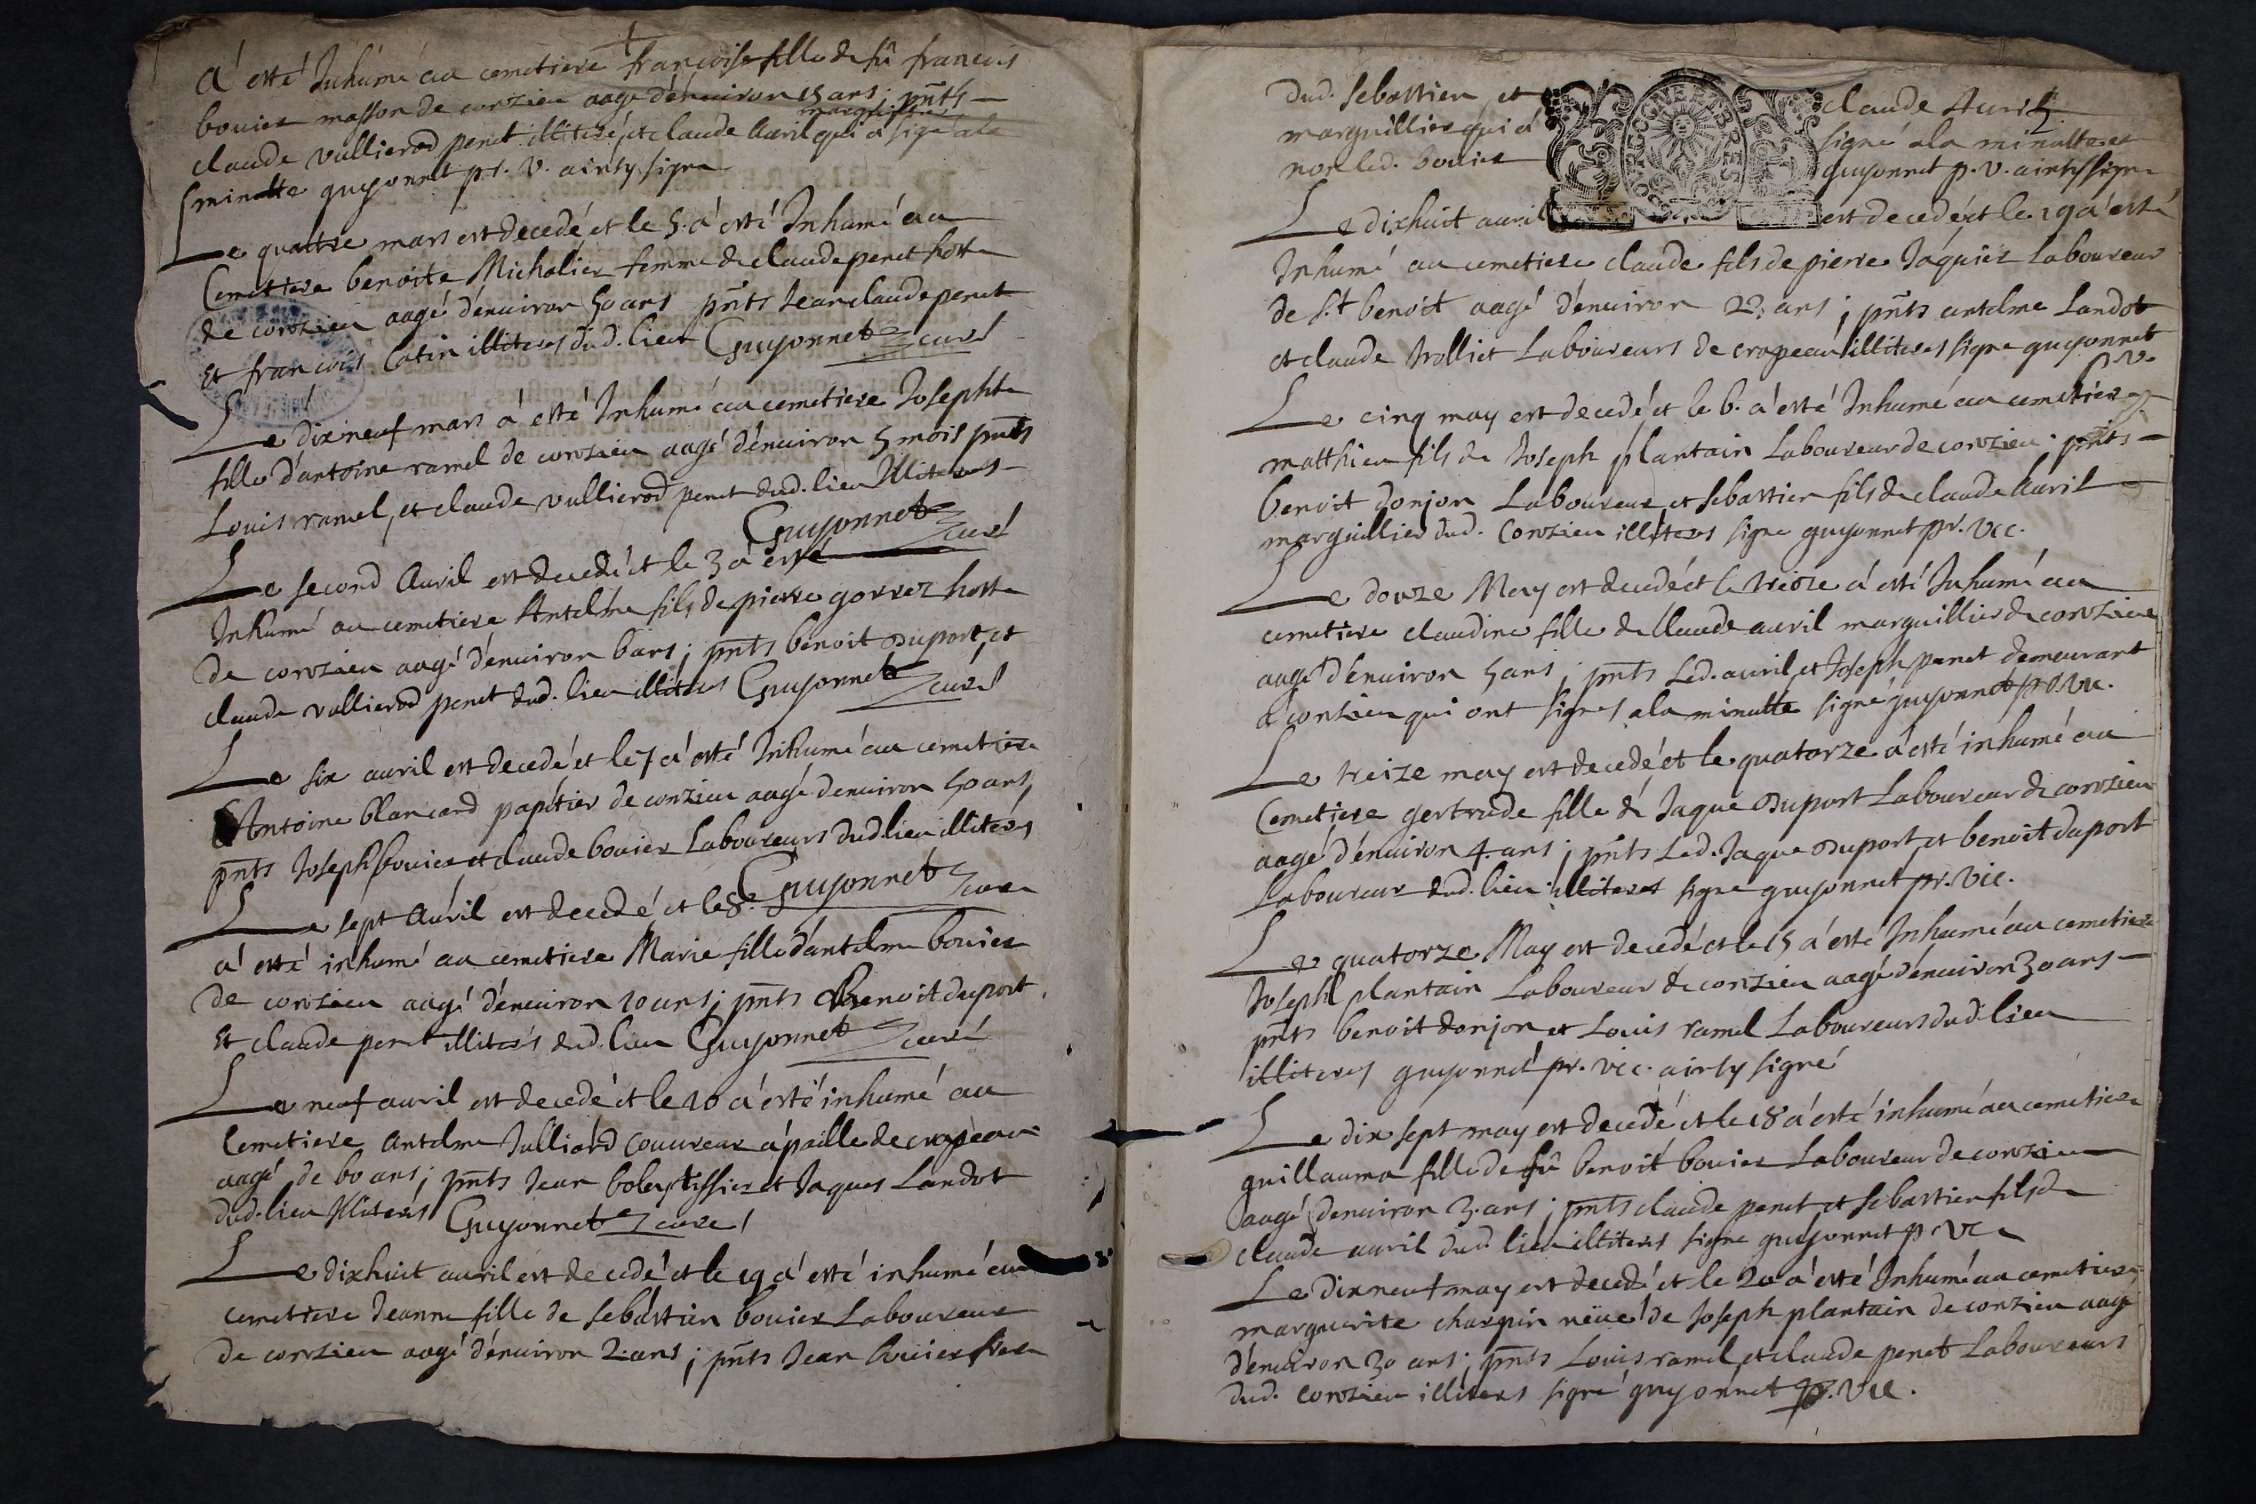 à esté Inhumé au cemetiere françoise fille de fû francois
bouier masson de conzieu aagé d'énuiron 15 ans; pñts
marguillier
claude vullierod penet illiteré, et claude Auril qui a signé a la
minutte guyonnet pr. v. ainsy signé
Le quattre mars est decedé et le 5. à esté Inhumé au
Cemettiere benoite Michalier femme de claude penet hoste
de conzieu aagé d'énuiron 50 ans pñts Jean claude penet
Et francois Catin illiteres dud. lieu Guyonnet curé
Le dix neuf mars à esté Inhumé au cemetiere Josephte
fille d'antoine ramel de conzieu aagé d'énuiron 5 mois pñts
Louis ramel, et claude vullierod penet dud. lieu Illiteres
Guyonnet curé
Le second Auril est decedé et le 3 à esté
Inhumé au cemetiere Antelme fils de pierre gorrez hoste
de conzieu aagé d'énuiron 6 ans; pñts benoit Duport, et
claude vullierod penet dud. lieu illiteres Guyonnet curé
Le six auril est decedé et le 7 à esté Inhumé au cemetiere
Antoine Blancard papetier de conzieu aagé denuiron 50 ans,
pñts Joseph bouier et claude bouier Laboureurs dud. lieu illiterés
Guyonnet curé
Le sept Auril est decedé et le 8.
à esté inhumé au cemetiere Marie fille d'antelme bouier
de conzieu aagé d'énuiron 10 ans; pñts Benoit duport
Et claude penet illiterés dud. lieu Guyonnet curé
Le neuf auril est decedé et le 10 à esté inhumé au
Cemetiere Antelme Julliard couureur à paille de crapeau
aagé de 60 ans; pñts Jean tissier et Jaques Landot
dud. lieu Illiterés Guyonnet curé
Le dixhuit auril est decedé et le 19 à esté inhumé au
cemetiere Jeanne fille de sebastien bouier Laboureur
de conzieu aagé d'énuiron 2. ans; pñts Jean bouier frere
dud. sebastien, et claude Auril
marguillier qui à signé a la minutte et
non led. bouier guyonnet p. v. ainsy signé
Le dixhuit auril est decedé et le 19 à esté
Inhumé au cemetiere claude fils de pierre Jáquier Laboureur
de s.t benoit aagé d'énuiron 22. ans; pñts antelme Landot
et claude trolliet Laboureurs de crapeau illiteres signé guyonnet
p. v.
Le cinq may est decedé, et le 6. à esté Inhumé au cemetiere
matthieu fils de Joseph plantain Laboureur de conzieu; pñts
benoit donjon Laboureur et sebastien fils de claude Auril
marguillier dud. Conzieu illiteres signé guyonnet pr. vic.
Le douze May est decedé et le treize à esté Inhumé au
cemetiere claudine fille de Claude auril marguillier de conzieu
aagé d'énuiron 5 ans; pñts Led. auril, et Joseph penet demeurant
à conzieu qui ont signés a la minutte signé guyonnet pr. vic.
Le treize may est decedé et le quatorze à esté inhumé au
Cemetiere gertrude fille de Jaque Duport Laboureur de conzieu
aagé d'énuiron 4. ans; pñts Led. Jaque Duport, et benoit duport
Laboureur dud. lieu illiteres signé guyonnet pr. vic.
Le quatorze May est decedé et le 15 à esté Inhumé au cemetiere
Joseph plantain Laboureur de conzieu aagé d'énuiron 30 ans
pñts benoit donjon et Louis ramel Laboureurs dud. lieu
illiteres guyonnet pr. vic. ainsy signé
Le dix sept may est decedé et le 18 à esté inhumé au cemetiere
guillauma fille de fû benoit bouier Laboureur de conzieu
aagé denuiron 3. ans; pñts claude penet et sebastien fils de
claude auril dud. lieu illiteres signé guyonnet p. vic
Le dix neuf may est decedé et le 20 à esté Inhumé au cemetiere
marguerite charpin de Joseph plantain de conzieu aagé
d'énuiron 30 ans; pñts Louis ramel, et claude penet Laboureurs
dud. conzieu illiteres signé guyonnet p. vic.